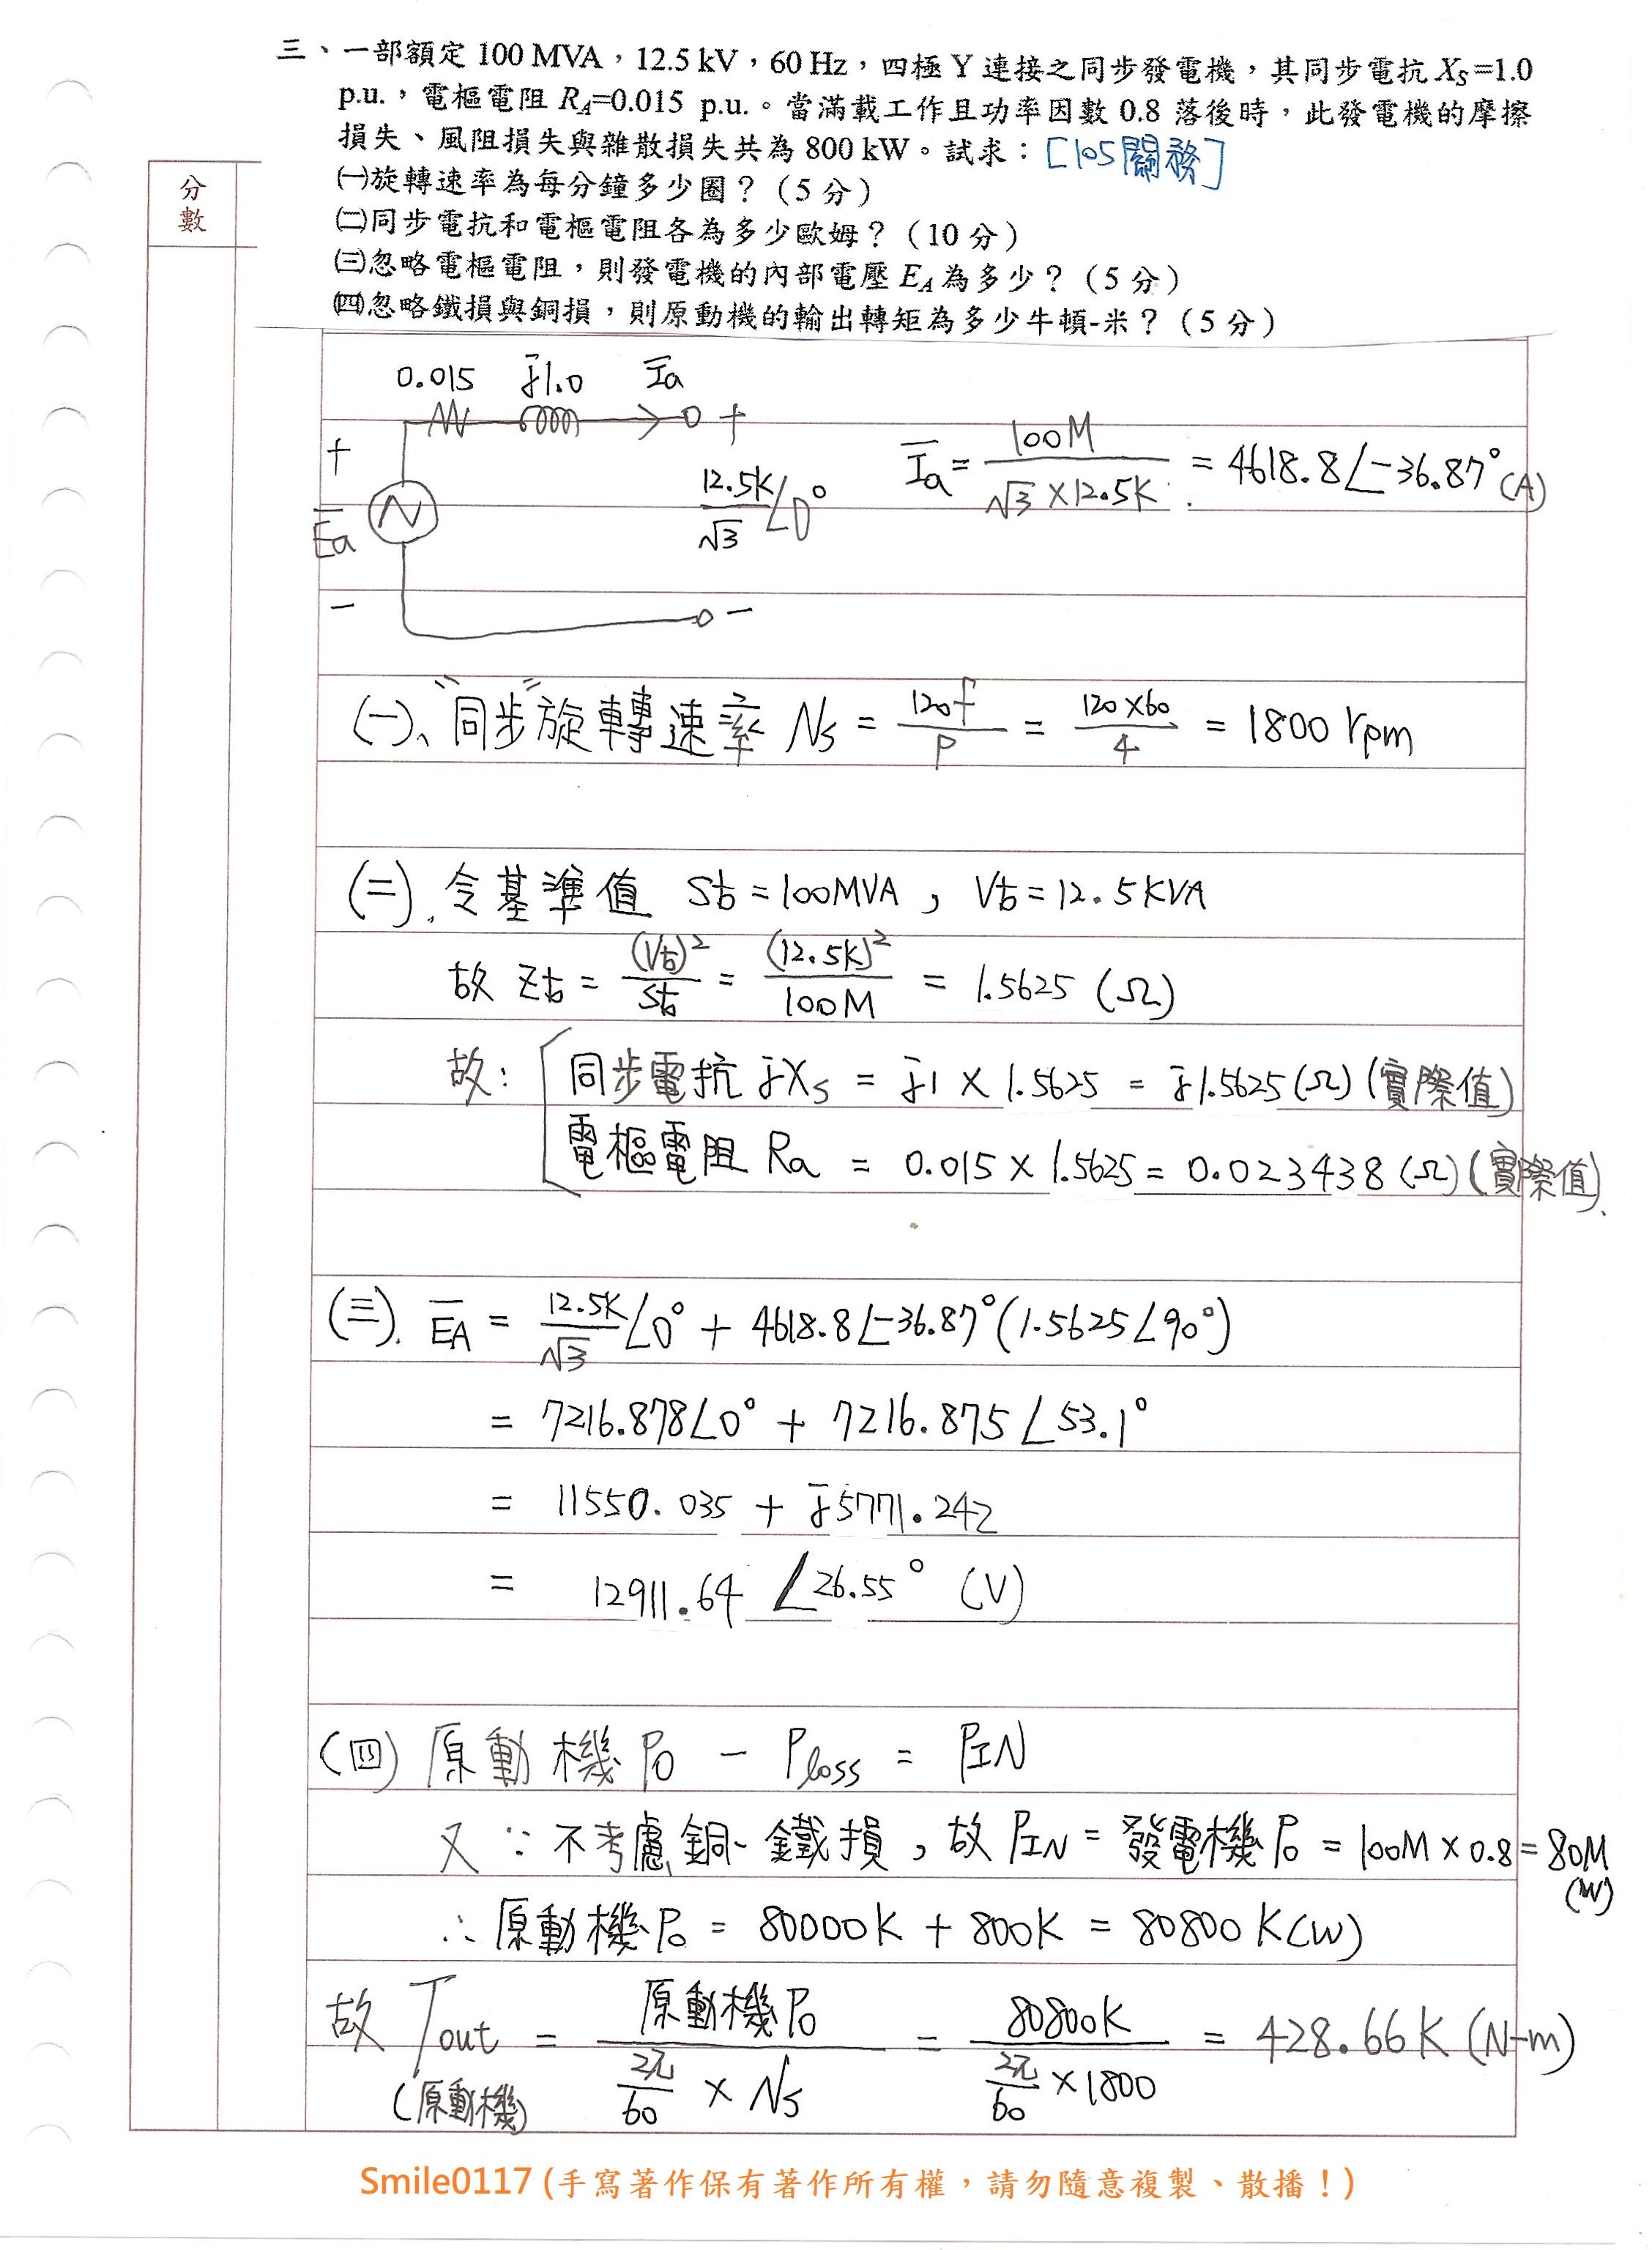 三、一部額定 100 MVA，12.5 kV，60 Hz，四極 Y 連接之同步發電機，其同步電抗 XS=1.0
p.u.，電樞電阻 RA=0.015 p.u.。當滿載工作且功率因數 0.8 落後時，此發電機的摩擦
損失、風阻損失與雜散損失共為 800 kW。試求：[105關務]
㈠旋轉速率為每分鐘多少圈？（5 分）
㈡同步電抗和電樞電阻各為多少歐姆？（10 分）
㈢忽略電樞電阻，則發電機的內部電壓 EA 為多少？（5 分）
㈣忽略鐵損與銅損，則原動機的輸出轉矩為多少牛頓-米？（5 分）
分數
0.015 j1.0 Ia
+ Ea −
+ 12.5K/√3∠0° −
Ia = 100M/(√3×12.5K) = 4618.8∠-36.87°(A)
(一)、"同步"旋轉速率 Ns = 120f/P = 120×60/4 = 1800 rpm
(二). 令基準值 Sb = 100MVA , Vb = 12.5KVA
故 Zb = (Vb)²/Sb = (12.5K)²/100M = 1.5625 (Ω)
故: 同步電抗 jXs = j1 × 1.5625 = j1.5625(Ω)(實際值)
電樞電阻 Ra = 0.015 × 1.5625 = 0.023438(Ω)(實際值).
(三). EA = 12.5K/√3∠0° + 4618.8∠-36.87°(1.5625∠90°)
= 7216.878∠0° + 7216.875∠53.1°
= 11550.035 + j5771.242
= 12911.64 ∠26.55° (V)
(四) 原動機Po − Ploss = PIN
又∵不考慮銅、鐵損，故 PIN = 發電機Po = 100M×0.8 = 80M (W)
∴原動機Po = 80000K + 800K = 80800K(W)
故 Tout (原動機) = 原動機Po/(2π/60 × Ns) = 80800K/(2π/60 × 1800) = 428.66K (N-m)
Smile0117 (手寫著作保有著作所有權，請勿隨意複製、散播！)